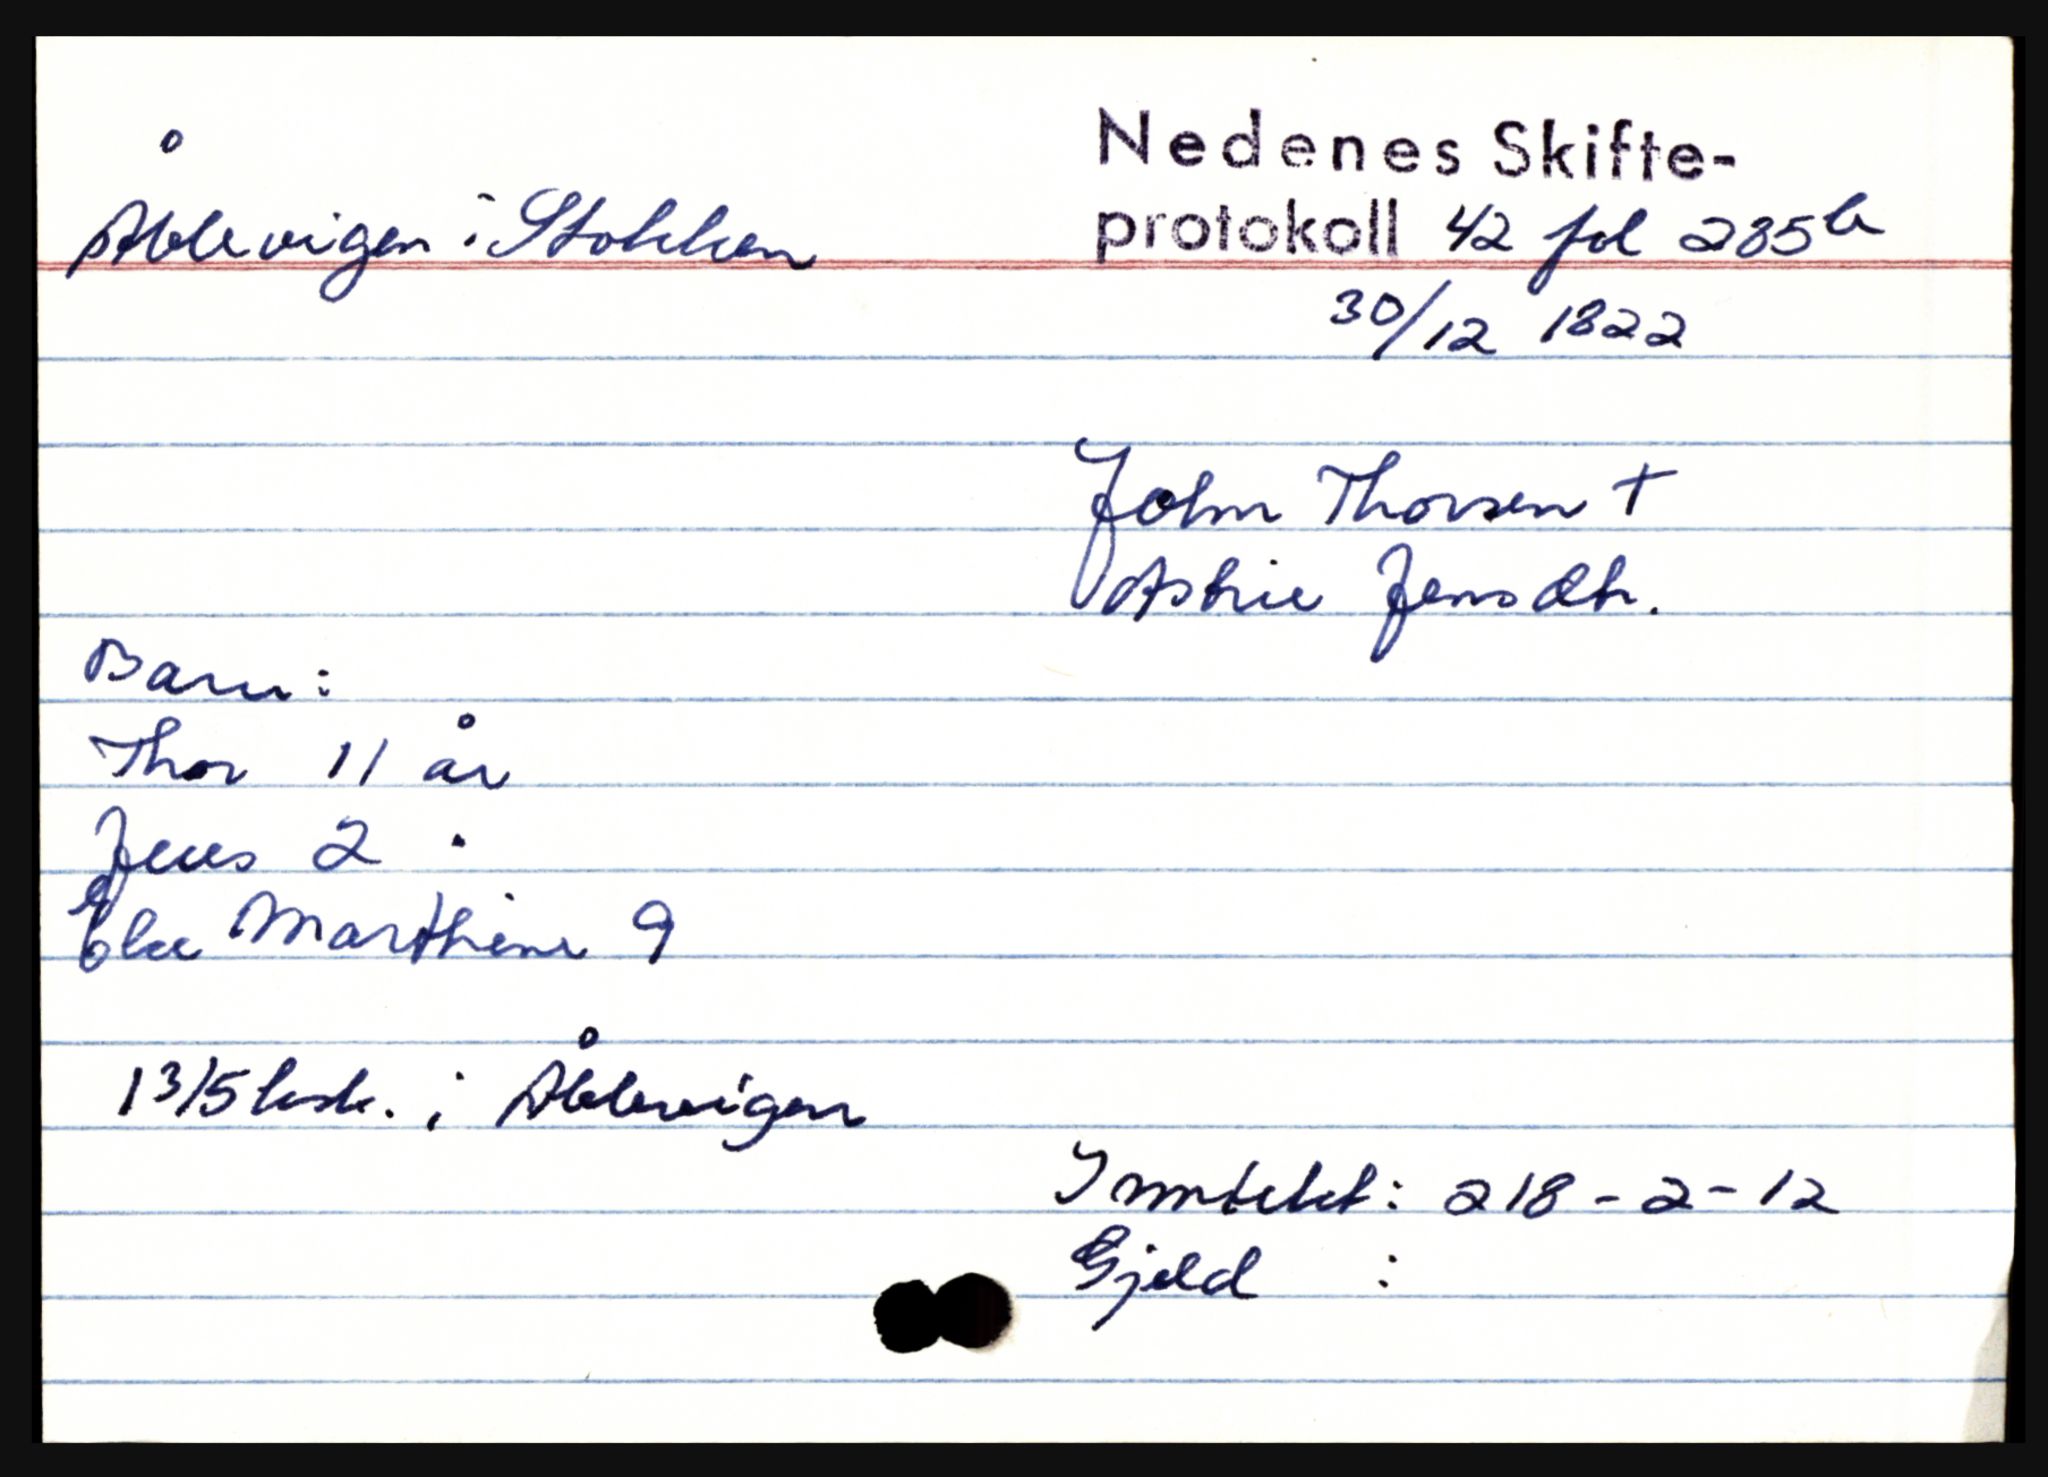 Åblevigen i Stokken
Nedenes Skifte-
protokoll 42 fol 285b
30/12 1822
John Thorsen †
Astrie Jensdtr.
Barn:
Thor 11 år
Jens 2 "
Else Marthine 9
1 3/5 ksk. i Åblevigen
Inntekt: 218-2-12
Gjeld :